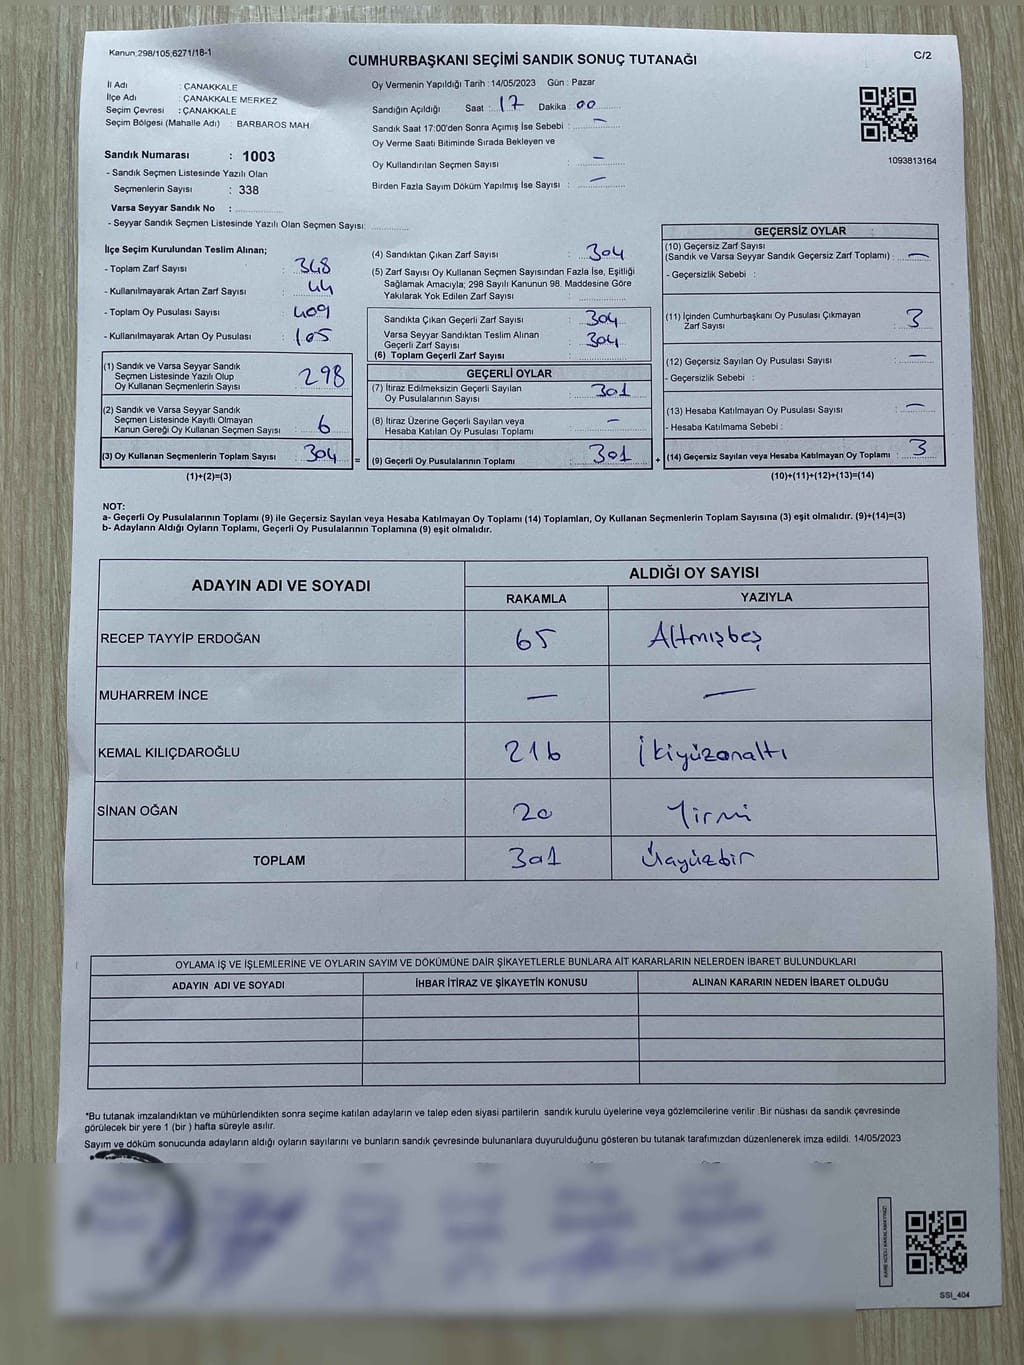 Kanun:298/105,6271/18-1
C/2
CUMHURBAŞKANI SEÇİMİ SANDIK SONUÇ TUTANAĞI
İl Adı : ÇANAKKALE
İlçe Adı : ÇANAKKALE MERKEZ
Seçim Çevresi : ÇANAKKALE
Seçim Bölgesi (Mahalle Adı) : BARBAROS MAH
Sandık Numarası : 1003
- Sandık Seçmen Listesinde Yazılı Olan
Seçmenlerin Sayısı : 338
Varsa Seyyar Sandık No :
- Seyyar Sandık Seçmen Listesinde Yazılı Olan Seçmen Sayısı:
Oy Vermenin Yapıldığı Tarih : 14/05/2023 Gün : Pazar
Sandığın Açıldığı Saat : 17 Dakika : 00
Sandık Saat 17:00'den Sonra Açımış İse Sebebi : —
Oy Verme Saati Bitiminde Sırada Bekleyen ve
Oy Kullandırılan Seçmen Sayısı : —
Birden Fazla Sayım Döküm Yapılmış İse Sayısı : —
1093813164
İlçe Seçim Kurulundan Teslim Alınan;
- Toplam Zarf Sayısı : 348
- Kullanılmayarak Artan Zarf Sayısı : 44
- Toplam Oy Pusulası Sayısı : 409
- Kullanılmayarak Artan Oy Pusulası : 105
(1) Sandık ve Varsa Seyyar Sandık
Seçmen Listesinde Yazılı Olup
Oy Kullanan Seçmenlerin Sayısı : 298
(2) Sandık ve Varsa Seyyar Sandık
Seçmen Listesinde Kayıtlı Olmayan
Kanun Gereği Oy Kullanan Seçmen Sayısı : 6
(3) Oy Kullanan Seçmenlerin Toplam Sayısı : 304
(1)+(2)=(3)
(4) Sandıktan Çıkan Zarf Sayısı : 304
(5) Zarf Sayısı Oy Kullanan Seçmen Sayısından Fazla İse, Eşitliği
Sağlamak Amacıyla; 298 Sayılı Kanunun 98. Maddesine Göre
Yakılarak Yok Edilen Zarf Sayısı :
Sandıkta Çıkan Geçerli Zarf Sayısı : 304
Varsa Seyyar Sandıktan Teslim Alınan
Geçerli Zarf Sayısı : 304
(6) Toplam Geçerli Zarf Sayısı :
GEÇERLİ OYLAR
(7) İtiraz Edilmeksizin Geçerli Sayılan
Oy Pusulalarının Sayısı : 301
(8) İtiraz Üzerine Geçerli Sayılan veya
Hesaba Katılan Oy Pusulası Toplamı : —
= (9) Geçerli Oy Pusulalarının Toplamı : 301
GEÇERSİZ OYLAR
(10) Geçersiz Zarf Sayısı
(Sandık ve Varsa Seyyar Sandık Geçersiz Zarf Toplamı) : —
- Geçersizlik Sebebi :
(11) İçinden Cumhurbaşkanı Oy Pusulası Çıkmayan
Zarf Sayısı : 3
(12) Geçersiz Sayılan Oy Pusulası Sayısı : —
- Geçersizlik Sebebi :
(13) Hesaba Katılmayan Oy Pusulası Sayısı : —
- Hesaba Katılmama Sebebi :
+ (14) Geçersiz Sayılan veya Hesaba Katılmayan Oy Toplamı : 3
(10)+(11)+(12)+(13)=(14)
NOT:
a- Geçerli Oy Pusulalarının Toplamı (9) ile Geçersiz Sayılan veya Hesaba Katılmayan Oy Toplamı (14) Toplamları, Oy Kullanan Seçmenlerin Toplam Sayısına (3) eşit olmalıdır. (9)+(14)=(3)
b- Adayların Aldığı Oyların Toplamı, Geçerli Oy Pusulalarının Toplamına (9) eşit olmalıdır.
ADAYIN ADI VE SOYADI
ALDIĞI OY SAYISI
RAKAMLA YAZIYLA
RECEP TAYYİP ERDOĞAN 65 Altmışbeş
MUHARREM İNCE — —
KEMAL KILIÇDAROĞLU 216 İkiyüzonaltı
SİNAN OĞAN 20 Yirmi
TOPLAM 301 Üçyüzbir
OYLAMA İŞ VE İŞLEMLERİNE VE OYLARIN SAYIM VE DÖKÜMÜNE DAİR ŞİKAYETLERLE BUNLARA AİT KARARLARIN NELERDEN İBARET BULUNDUKLARI
ADAYIN ADI VE SOYADI İHBAR İTİRAZ VE ŞİKAYETİN KONUSU ALINAN KARARIN NEDEN İBARET OLDUĞU
*Bu tutanak imzalandıktan ve mühürlendikten sonra seçime katılan adayların ve talep eden siyasi partilerin sandık kurulu üyelerine veya gözlemcilerine verilir .Bir nüshası da sandık çevresinde
görülecek bir yere 1 (bir ) hafta süreyle asılır.
Sayım ve döküm sonucunda adayların aldığı oyların sayılarını ve bunların sandık çevresinde bulunanlara duyurulduğunu gösteren bu tutanak tarafımızdan düzenlenerek imza edildi. 14/05/2023
KARE KODU KARALAMAYINIZ!
SSI_404